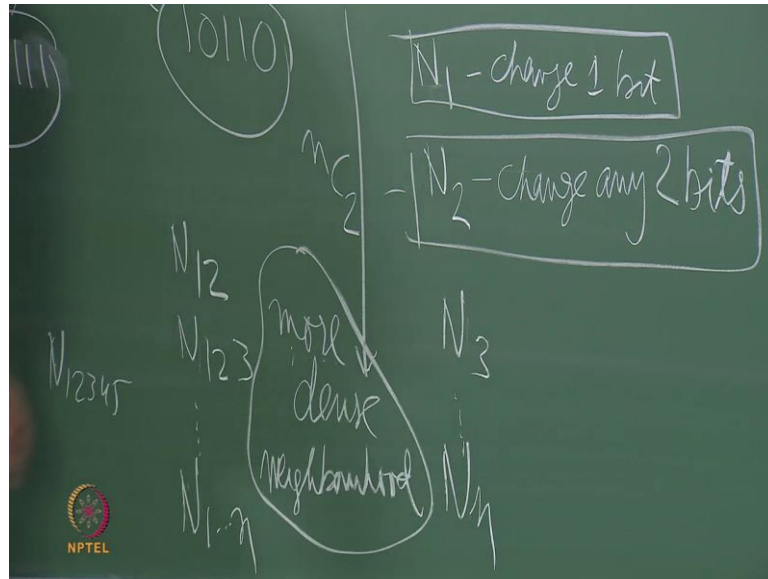 111
10110
N1 - change 1 bit
nC2 - N2 - change any 2 bits
N12
N123
N12345
N1--n
more
dense
neighbourhood
N3
Nn
NPTEL